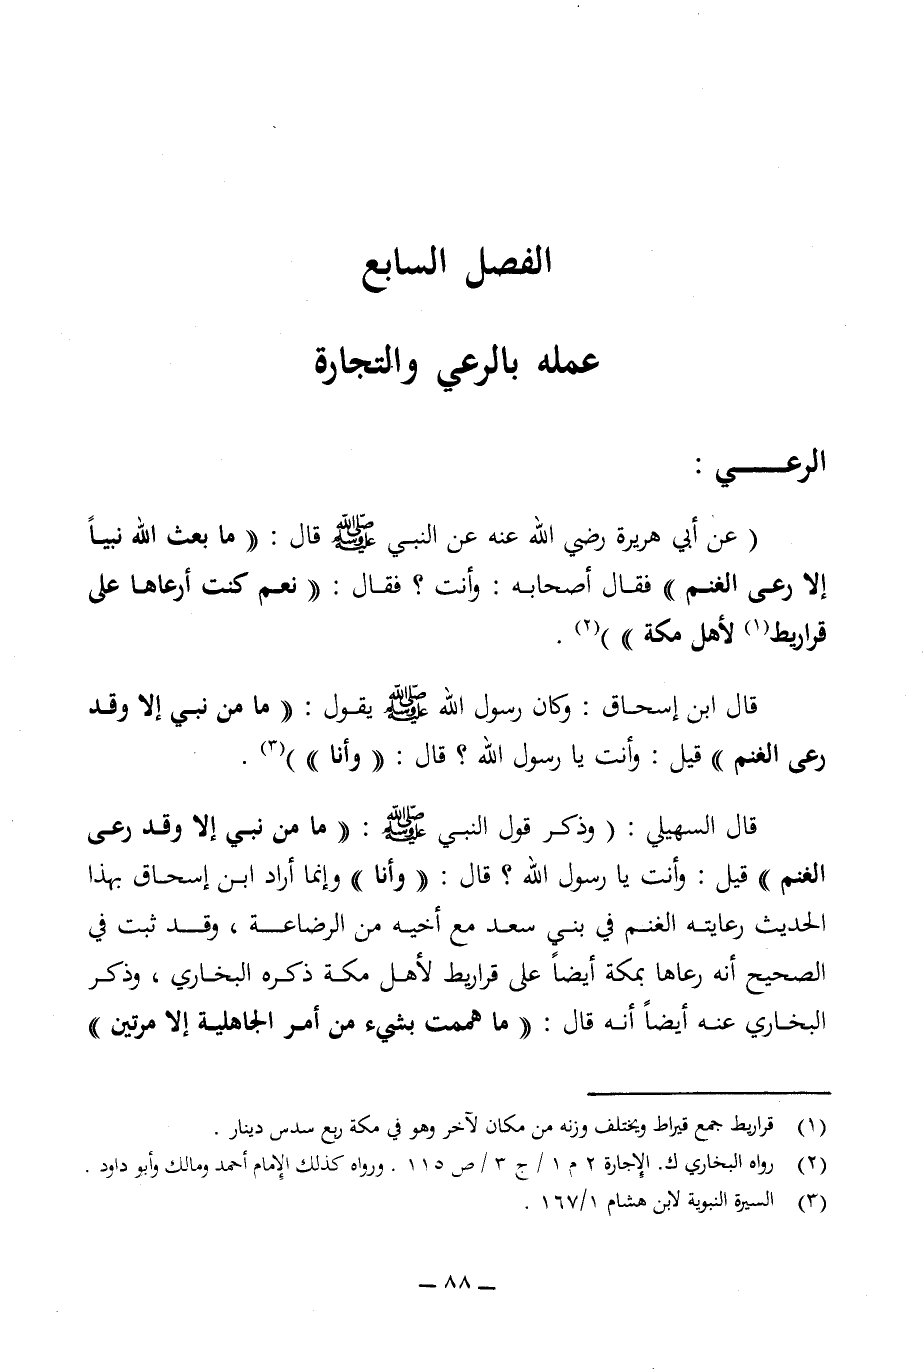 الفصل السابع
عمله بالرعي والتجارة
الرعـــــي :
( عن أبي هريرة رضي الله عنه عن النبي ﷺ قال : « ما بعث الله نبياً
إلا رعى الغنم » فقال أصحابه : وأنت ؟ فقال : « نعم كنت أرعاها على
قراريط(١) لأهل مكة » )(٢) .
قال ابن إسحاق : وكان رسول الله ﷺ يقول : « ما من نبي إلا وقد
رعى الغنم » قيل : وأنت يا رسول الله ؟ قال : « وأنا » )(٣) .
قال السهيلي : ( وذكر قول النبي ﷺ : « ما من نبي إلا وقد رعى
الغنم » قيل : وأنت يا رسول الله ؟ قال : « وأنا » وإنما أراد ابن إسحاق بهذا
الحديث رعايته الغنم في بني سعد مع أخيه من الرضاعة ، وقد ثبت في
الصحيح أنه رعاها بمكة أيضاً على قراريط لأهل مكة ذكره البخاري ، وذكر
البخاري عنه أيضاً أنه قال : « ما هممت بشيء من أمر الجاهلية إلا مرتين »
(١) قراريط جمع قيراط ويختلف وزنه من مكان لآخر وهو في مكة ربع سدس دينار .
(٢) رواه البخاري ك. الإجارة ٢ م ١ / ج ٣ / ص ١١٥ . ورواه كذلك الإمام أحمد ومالك وأبو داود .
(٣) السيرة النبوية لابن هشام ١٦٧/١ .
– ٨٨ –